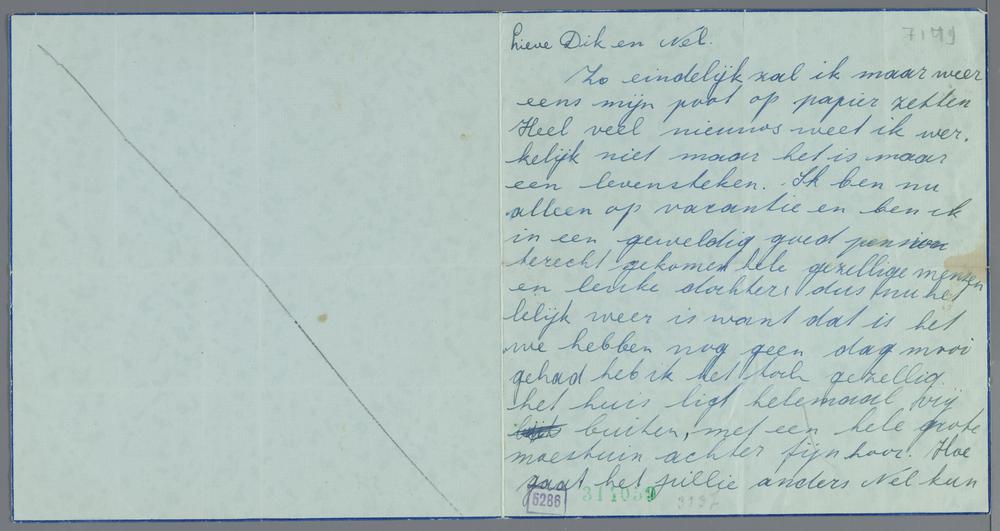 7149
Lieve Dik en Nel.
Zo eindelijk zal ik maar weer
eens mijn poot op papier zetten
Heel veel nieuws weet ik wer.
kelijk niet maar het is maar
een levensteken. Ik ben nu
alleen op vacantie en ben ik
in een geweldig goed pension
terecht gekomen hele gezellige mensen
en leuke dochters dus nu het
lelijk weer is want dat is het
we hebben nog geen dag mooi
gehad heb ik het toch gezellig.
het huis ligt helemaal vrij
buiten, met een hele grote
moestuin achter fijn hoor. Hoe
gaat het jullie anders Nel kun
5286
311059